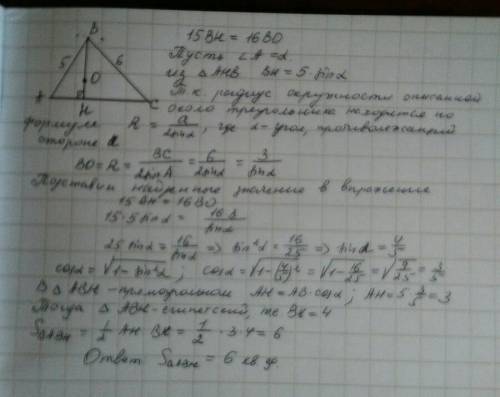 B
5 6
O
A H C
15BH = 16BO
Пусть ∠A = α
из △AHB BH = 5·sinα
Т.к. радиус окружности описанной
около треугольника находится по
формуле R = a/2sinα, где α - угол, противолежащий
стороне a
BO = R = BC/2sinA = 6/2sinα = 3/sinα
Подставим найденное значение в выражение
15BH = 16BO
15·5sinα = 16·3/sinα
25 sinα = 16/sinα => sin²α = 16/25 => sinα = 4/5
cosα = √1-sin²α ; cosα = √1-(4/5)² = √1-16/25 = √9/25 = 3/5
△ABH - прямоугольный AH = AB·cosα ; AH = 5·3/5 = 3
Тогда △ABH - египетский, т.е. BH = 4
S△ABH = 1/2 AH·BH = 1/2·3·4 = 6
Ответ S△ABH = 6 кв.ед.